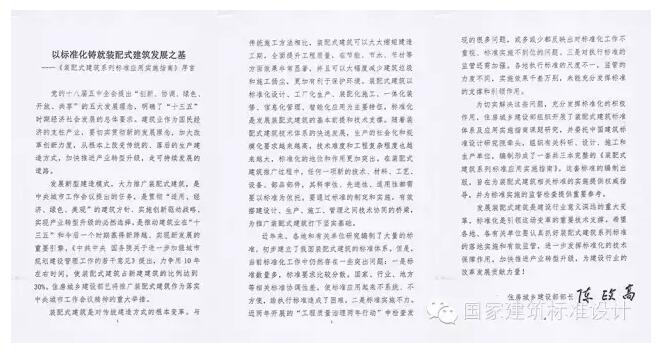 以标准化铸就装配式建筑发展之基
——《装配式建筑系列标准应用实施指南》序言
党的十八届五中全会提出“创新、协调、绿色、
开放、共享”的五大发展理念，明确了“十三五”
时期经济社会发展的总体要求。建筑业作为国民经
济的支柱产业，要切实贯彻新的发展理念，加大改
革创新力度，从根本上改变传统的、落后的生产建
造方式，加快推进产业转型升级，走可持续发展的
道路。
发展新型建造模式，大力推广装配式建筑，是
中央城市工作会议提出的任务，是贯彻“适用、经
济、绿色、美观”的建筑方针、实施创新驱动战略、
实现产业转型升级的必然选择，是推动建筑业在“十
三五”和今后一个时期赢得新跨越、实现新发展的
重要引擎。《中共中央 国务院关于进一步加强城市
规划建设管理工作的若干意见》提出，力争用 10 年
左右时间，使装配式建筑占新建建筑的比例达到
30%。住房城乡建设部已将推广装配式建筑作为落实
中央城市工作会议精神的重大举措。
装配式建筑是对传统建造方式的根本变革。与
传统施工方法相比，装配式建筑可以大大缩短建造工
期，全面提升工程质量，在节能、节水、节材等
方面效果非常显著，并且可以大幅度减少建筑垃圾
和施工扬尘，更加有利于保护环境。装配式建筑以
标准化设计、工厂化生产、装配化施工、一体化装
修、信息化管理、智能化应用为主要特征，标准化
是发展装配式建筑的基本前提和技术支撑。随着装
配式建筑技术体系的快速发展，生产的社会化和规
模化要求越来越高，技术难度和工程复杂程度也越
来越大，标准化的地位和作用更加突出。在装配式
建筑推广过程中，任何一项新的技术、材料、工艺、
设备、部品部件，其科学性、先进性、适用性都需
要以标准为依托，要通过标准的制定和实施，有效
搭建设计、生产、施工、管理之间技术协同的桥梁，
为推广装配式建筑切下坚实基础。
近年来，各地和有关单位研究编制了大量的标
准，初步建立了我国装配式建筑的标准体系。但是，
当前标准化工作中仍然存在一些突出问题：一是标
准数量多，标准要求比较分散，国家、行业、地方
等相关标准协调性差，使标准应用起来不系统、不
方便，给执行标准造成了困难。二是标准实施不力。
近两年开展的“工程质量治理两年行动”中检查发
现的很多问题，或多或少都反映出对标准化工作不
重视、标准实施不到位的问题。三是对执行标准的
监管还需加强。各地执行标准的尺度不一，监管的
力度不同，实施效果千差万别，未能充分发挥标准
的支撑和引领作用。
为切实解决这些问题，充分发挥标准化的积极
作用，住房城乡建设部组织开展了装配式建筑标准
体系及应用实施指南课题研究，并委托中国建筑标
准设计研究院牵头，组织有关科研、设计、施工和
生产单位，编制形成了一套共三本完整的《装配式
建筑系列标准应用实施指南》。这套标准的编制出
版，旨在为装配式建筑相关标准的实施提供权威指
导，并为标准实施的监督检查提供重要参考。
发展装配式建筑是建设行业意义深远的重大变
革，标准化是引领这场变革的重要技术支撑，希望
各地、各有关单位要认真抓好装配式建筑系列标准
的落地实施和有效监管，进一步发挥标准化的技术
保障作用，加快推进产业转型升级，为建设行业的
改革发展贡献力量！
住房城乡建设部部长 陈政高
国家建筑标准设计